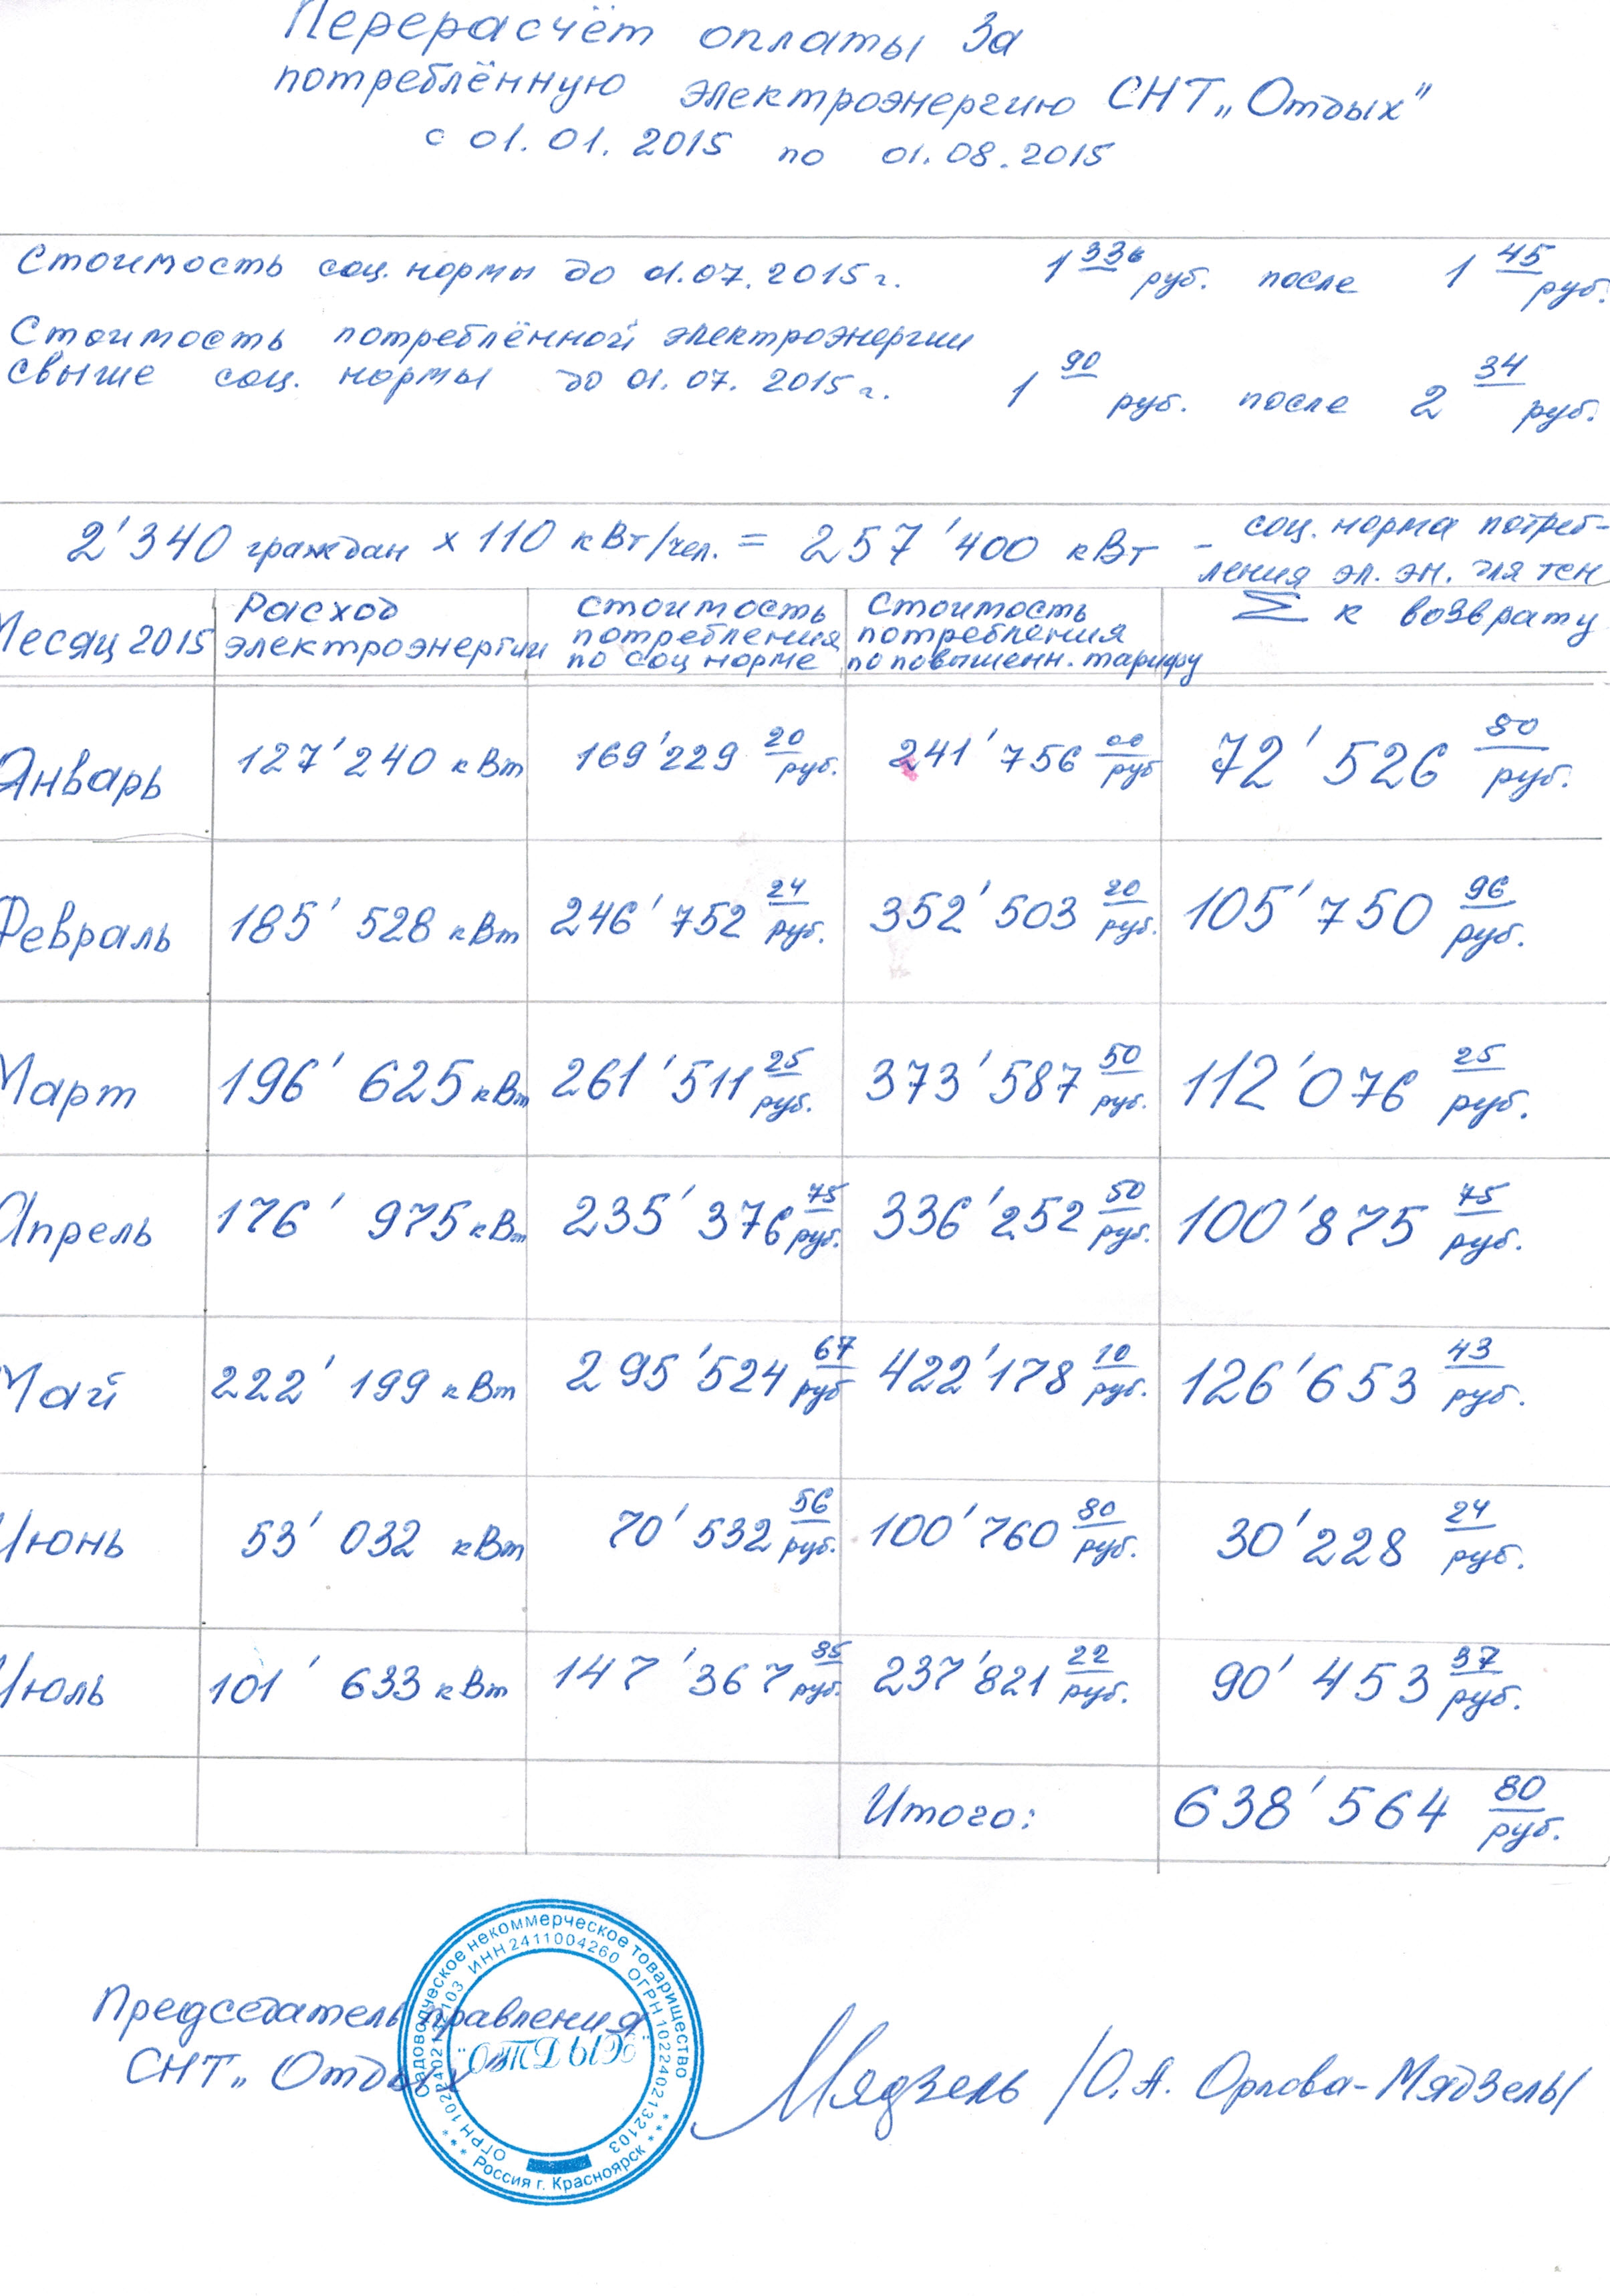 Перерасчёт оплаты за
потреблённую электроэнергию СНТ „Отдых"
с 01.01.2015 по 01.08.2015
Стоимость соц. нормы до 01.07.2015 г. 1 336 руб. после 1 45 руб.
Стоимость потреблённой электроэнергии
свыше соц. нормы до 01.07.2015 г. 1 90 руб. после 2 34 руб.
2'340 граждан х 110 кВт/чел. = 257'400 кВт - соц. норма потреб-
ления эл. эн. для
Месяц 2015 Расход электроэнергии Стоимость потребления по соц норме Стоимость потребления по повышенн. тарифу Σ к возврату
Январь 127'240 кВт 169'229 20 руб. 241'756 00 руб 72'526 80 руб.
Февраль 185'528 кВт 246'752 24 руб. 352'503 20 руб. 105'750 96 руб.
Март 196'625 кВт 261'511 25 руб. 373'587 50 руб. 112'076 25 руб.
Апрель 176'975 кВт 235'376 75 руб. 336'252 50 руб. 100'875 75 руб.
Май 222'199 кВт 295'524 67 руб 422'178 10 руб. 126'653 43 руб.
Июнь 53'032 кВт 70'532 56 руб. 100'760 80 руб. 30'228 24 руб.
Июль 101'633 кВт 147'367 85 руб. 237'821 22 руб. 90'453 37 руб.
Итого: 638'564 80 руб.
Председатель правления
СНТ „Отдых"
Мядзель /О.А. Орлова-Мядзель/
Садоводческое некоммерческое товарищество
ИНН 2411004260 ОГРН 1022402132103
"ОТДЫХ"
ОГРН 1022402132103
*** Россия г. Красноярск ***